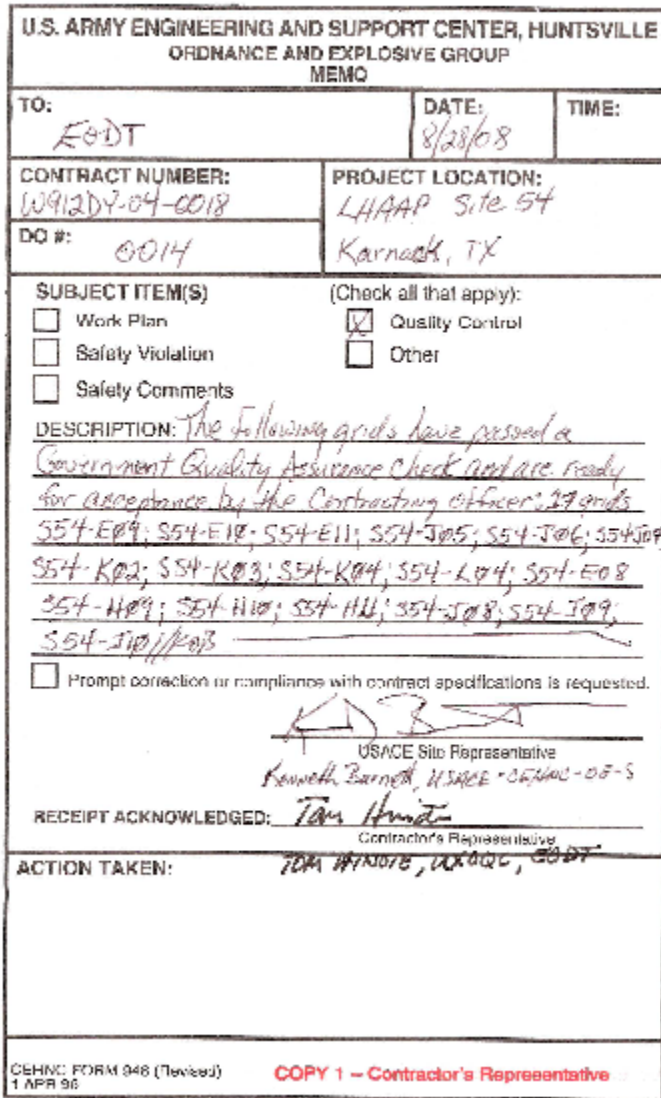 U.S. ARMY ENGINEERING AND SUPPORT CENTER, HUNTSVILLE
ORDNANCE AND EXPLOSIVE GROUP
MEMO
TO:
EODT
DATE:
8/28/08
TIME:
CONTRACT NUMBER:
W912DY-04-0018
PROJECT LOCATION:
LHAAP Site 54
Karnack, TX
DO #:
0014
SUBJECT ITEM(S)
(Check all that apply):
Work Plan
X Quality Control
Safety Violation
Other
Safety Comments
DESCRIPTION: The following grids have passed a
Government Quality Assurance Check and are ready
for acceptance by the Contracting officer: grids
S54-E09; S54-E10; S54-E11; S54-J05; S54-J06; S54J07
S54-K02; S54-K03; S54-K04; S54-L04; S54-E08
S54-H09; S54-H10; S54-H11; S54-J08; S54-J09;
S54-J10//
Prompt correction or compliance with contract specifications is requested.
USACE Site Representative
Kenneth Barnett, USACE-CEHNC-OE-S
RECEIPT ACKNOWLEDGED: Tom
Contractor's Representative
TOM HINDIE, UXOQC, EODT
ACTION TAKEN:
CEHNC FORM 948 (Revised)
1 APR 96
COPY 1 – Contractor's Representative